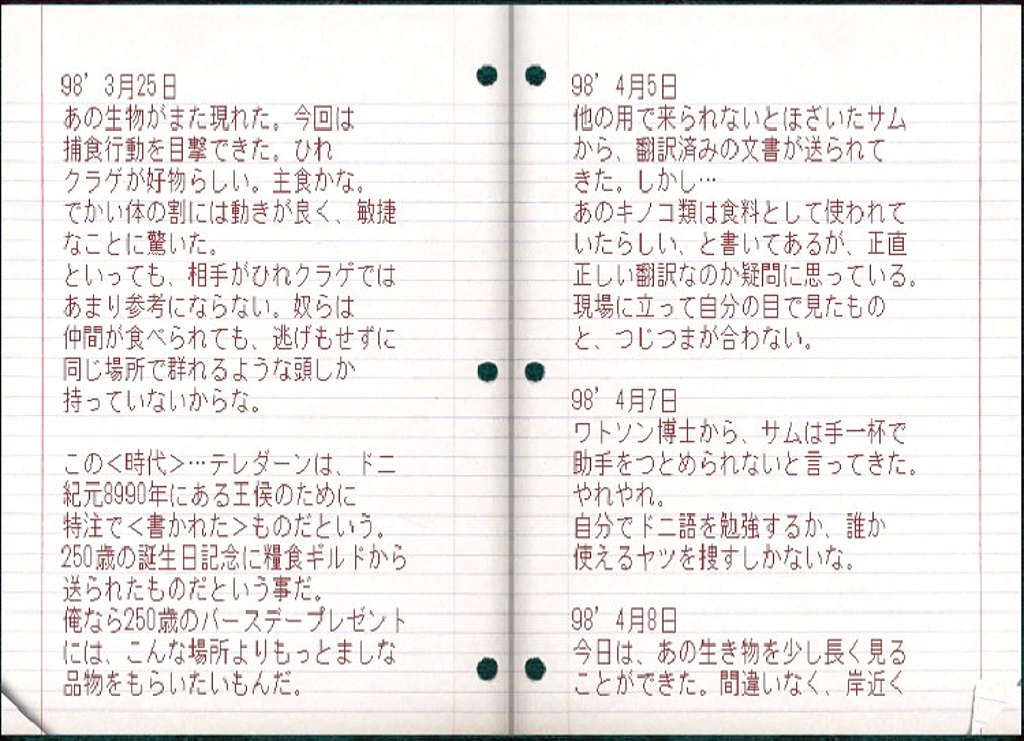 98' 3月25日
あの生物がまた現れた。今回は
捕食行動を目撃できた。ひれ
クラゲが好物らしい。主食かな。
でかい体の割には動きが良く、敏捷
なことに驚いた。
といっても、相手がひれクラゲでは
あまり参考にならない。奴らは
仲間が食べられても、逃げもせずに
同じ場所で群れるような頭しか
持っていないからな。
この<時代>…テレダーンは、ドニ
紀元8990年にある王侯のために
特注で<書かれた>ものだという。
250歳の誕生日記念に糧食ギルドから
送られたものだという事だ。
俺なら250歳のバースデープレゼント
には、こんな場所よりもっとましな
品物をもらいたいもんだ。
98' 4月5日
他の用で来られないとほざいたサム
から、翻訳済みの文書が送られて
きた。しかし…
あのキノコ類は食料として使われて
いたらしい、と書いてあるが、正直
正しい翻訳なのか疑問に思っている。
現場に立って自分の目で見たもの
と、つじつまが合わない。
98' 4月7日
ワトソン博士から、サムは手一杯で
助手をつとめられないと言ってきた。
やれやれ。
自分でドニ語を勉強するか、誰か
使えるヤツを捜すしかないな。
98' 4月8日
今日は、あの生き物を少し長く見る
ことができた。間違いなく、岸近く